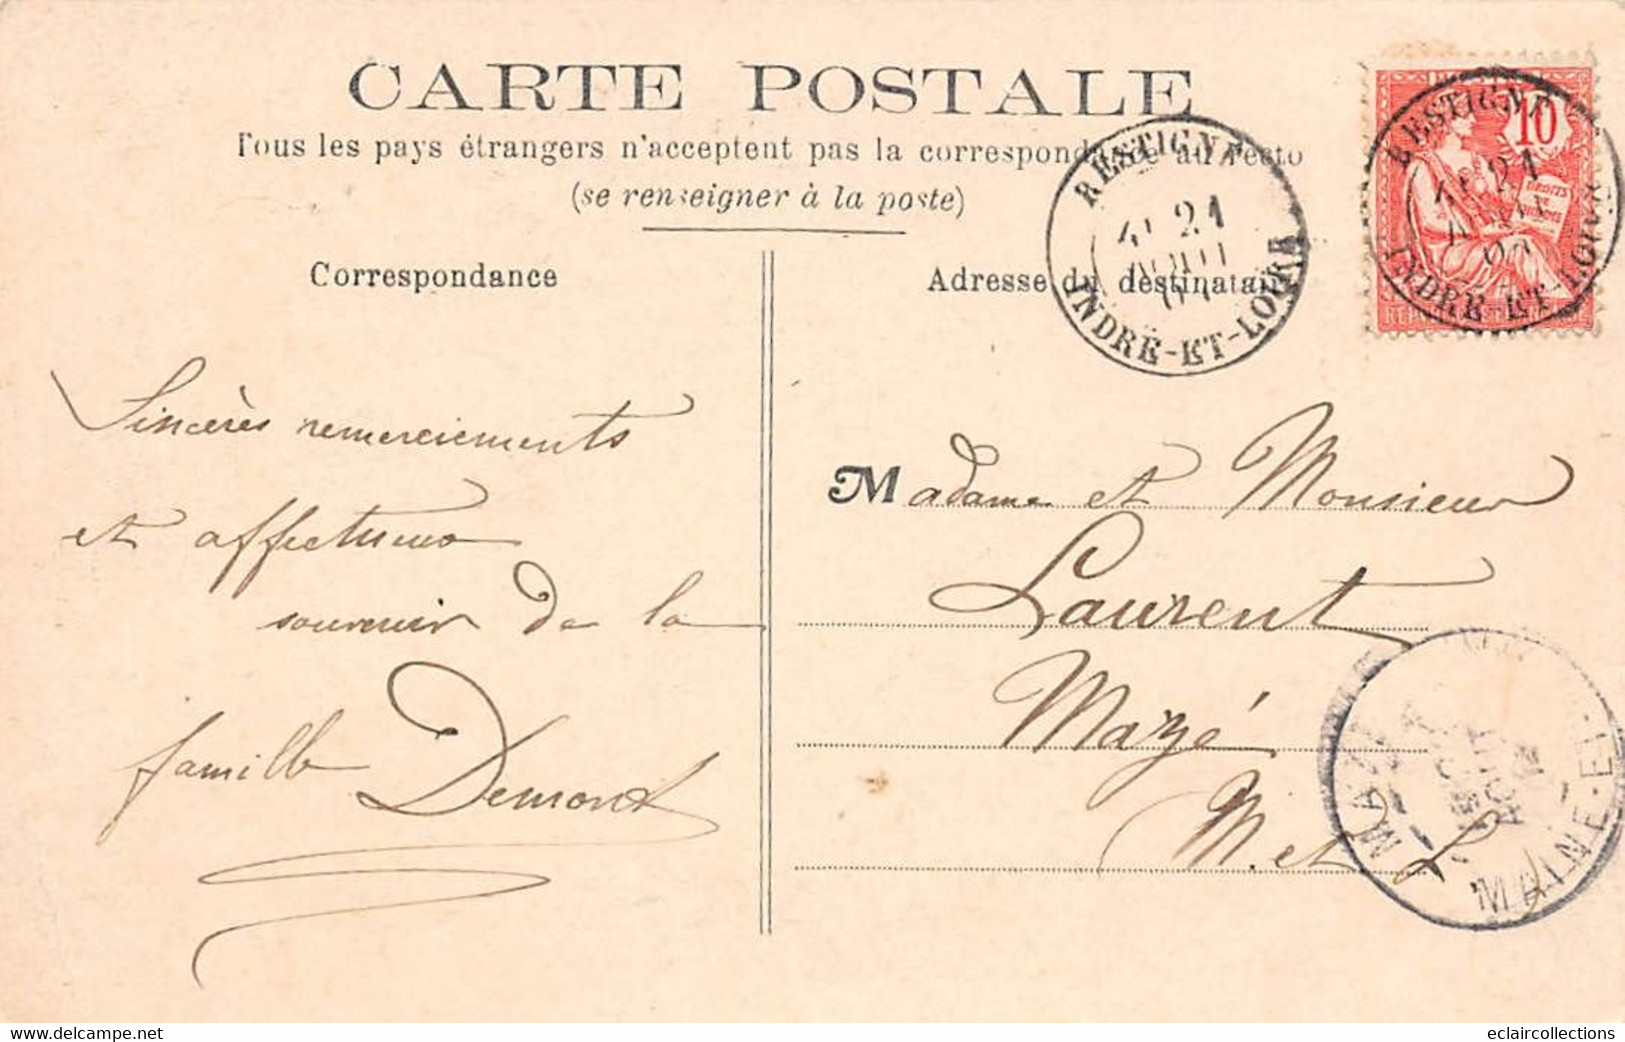 CARTE POSTALE
Tous les pays étrangers n'acceptent pas la correspondance au recto
(se renseigner à la poste)
Correspondance
Adresse du destinataire
RESTIGNÉ
21
AOUT
INDRE-ET-LOIRE
RESTIGNÉ
21
INDRE-ET-LOIRE
10
DROITS
DE
L'HOMME
Sincères remerciements
et affectueux
souvenir de la
famille Demont
Madame et Monsieur
Laurent
Mazé
M. et L.
MAZÉ
AOUT
MAINE-ET-
www.delcampe.net
eclaircollections